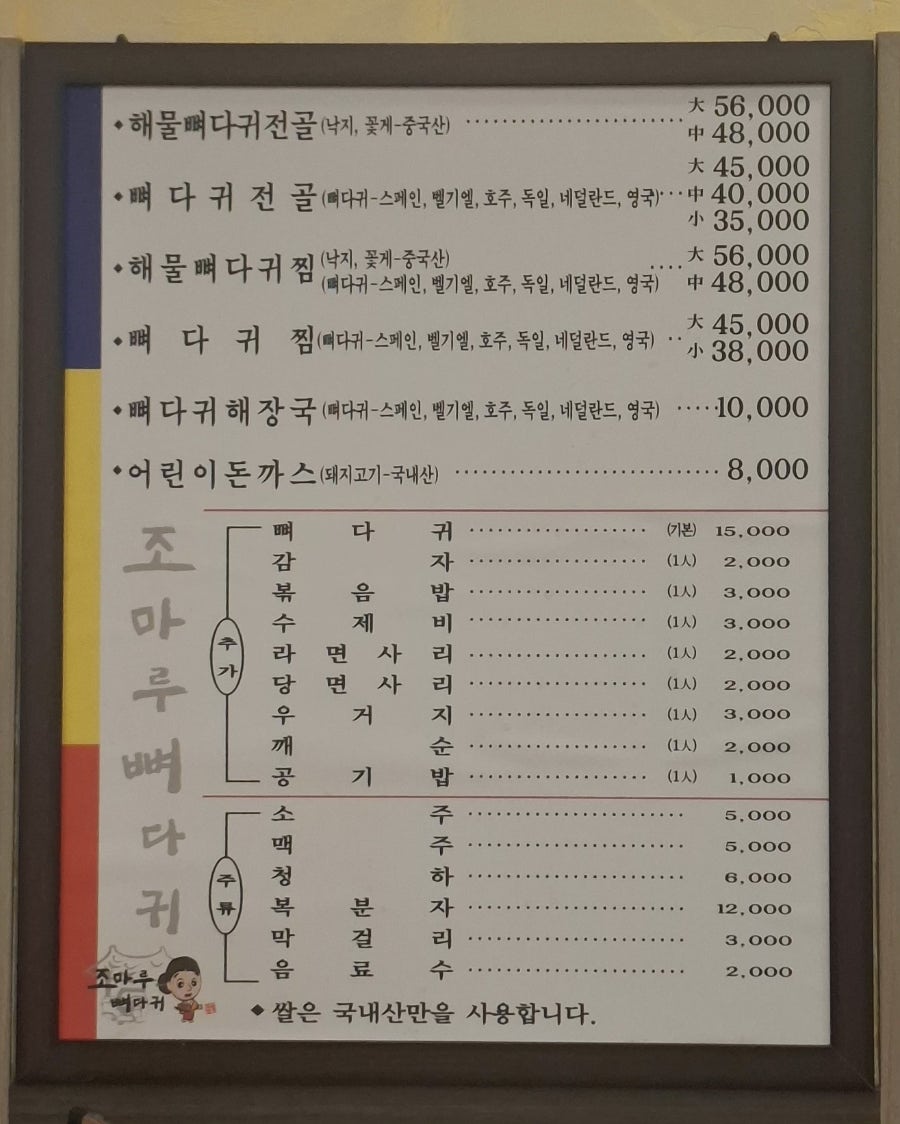 ◆해물뼈다귀전골(낙지, 꽃게-중국산) ························ 大 56,000
中 48,000
◆뼈다귀전골(뼈다귀-스페인, 벨기엘, 호주, 독일, 네덜란드, 영국)··· 大 45,000
中 40,000
小 35,000
◆해물뼈다귀찜(낙지, 꽃게-중국산)
(뼈다귀-스페인, 벨기엘, 호주, 독일, 네덜란드, 영국) ···· 大 56,000
中 48,000
◆뼈다귀찜(뼈다귀-스페인, 벨기엘, 호주, 독일, 네덜란드, 영국) ·· 大 45,000
小 38,000
◆뼈다귀해장국(뼈다귀-스페인, 벨기엘, 호주, 독일, 네덜란드, 영국) ·····10,000
◆어린이돈까스(돼지고기-국내산) ····························· 8,000
조마루뼈다귀
추가
뼈다귀 ···················· (기본) 15,000
감자 ···················· (1人) 2,000
볶음밥 ···················· (1人) 3,000
수제비 ···················· (1人) 3,000
라면사리 ···················· (1人) 2,000
당면사리 ···················· (1人) 2,000
우거지 ···················· (1人) 3,000
깨순 ···················· (1人) 2,000
공기밥 ···················· (1人) 1,000
주류
소주 ························ 5,000
맥주 ························ 5,000
청하 ························ 6,000
복분자 ························ 12,000
막걸리 ························ 3,000
음료수 ························ 2,000
조마루
뼈다귀
◆ 쌀은 국내산만을 사용합니다.